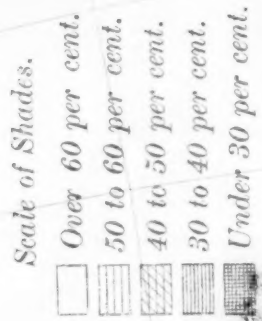 Scale of Shades.
Over 60 per cent.
50 to 60 per cent.
40 to 50 per cent.
30 to 40 per cent.
Under 30 per cent.